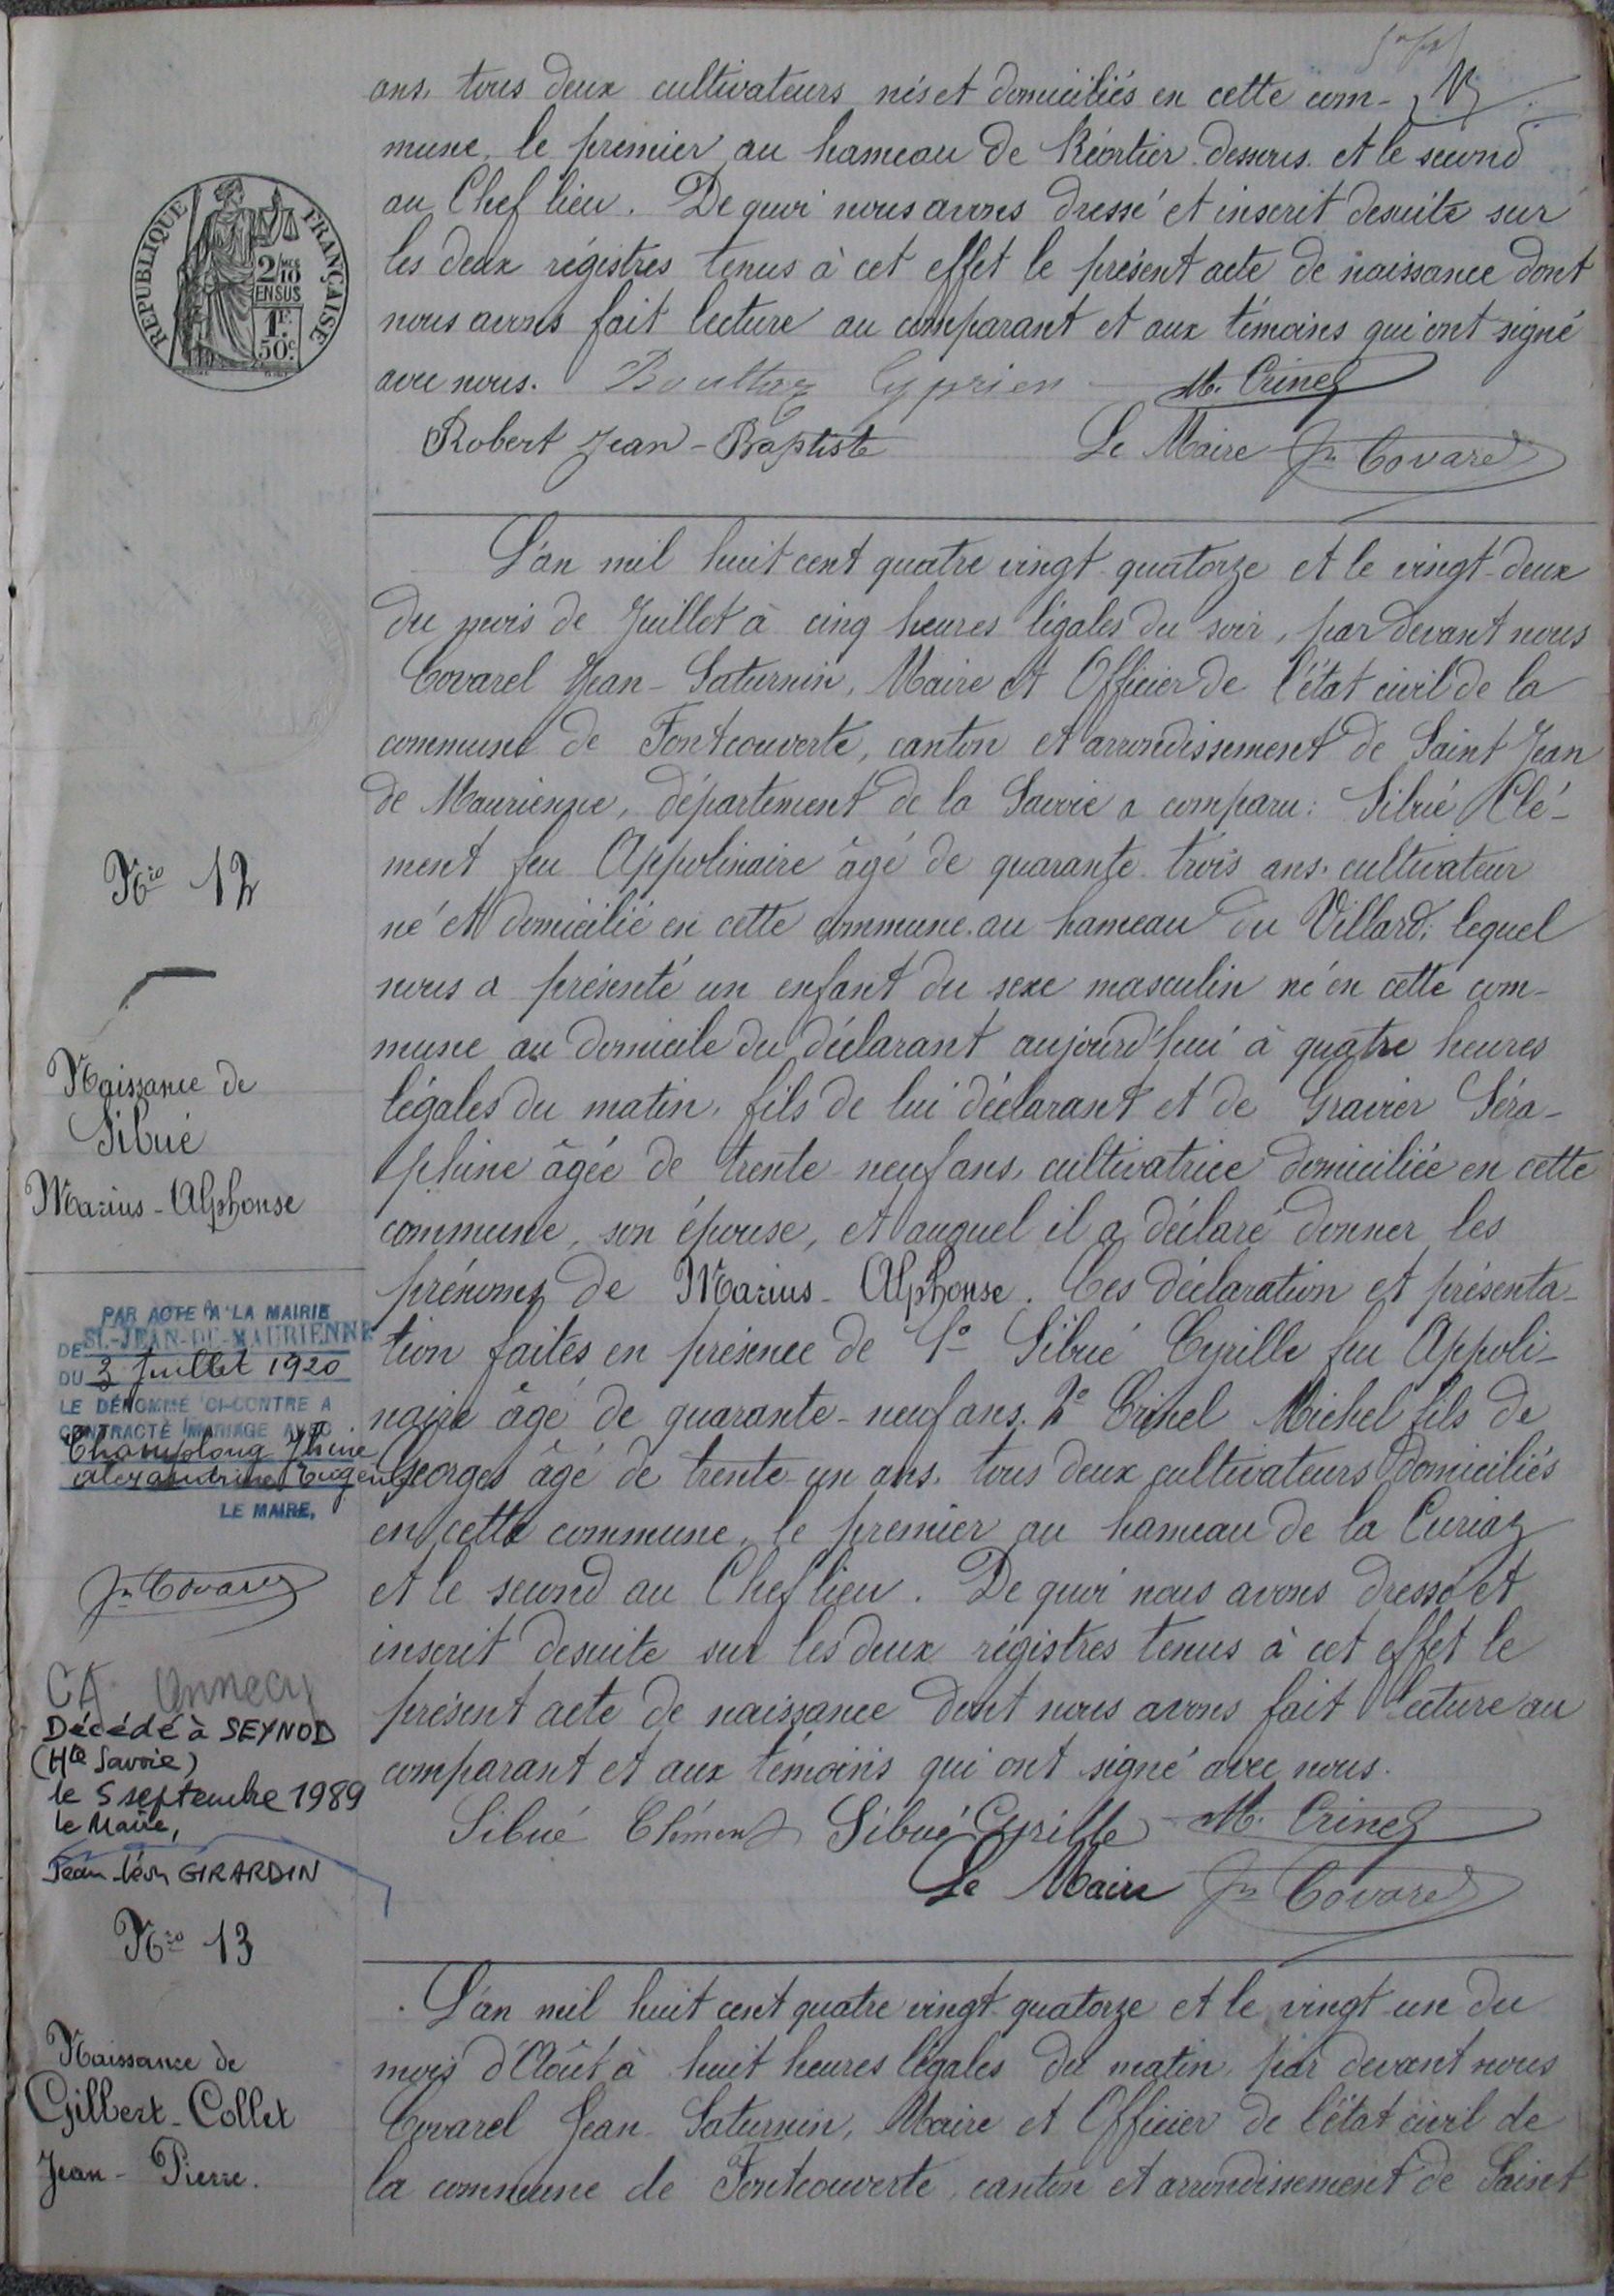 ans, tous deux cultivateurs nés et domiciliés en cette com-
mune, le premier au hameau de Réortier dessous et le second
au Chef lieu. De quoi nous avons dressé et inscrit desuite sur
les deux régistres tenus à cet effet le présent acte de naissance dont
nous avons fait lecture au comparant et aux témoins qui ont signé
avec nous. Bouttaz Cyprien M. Crinel
Robert Jean-Baptiste Le Maire Jn Covarel
REPUBLIQUE FRANÇAISE
2/10
EN SUS
1F
50c
L'an mil huit cent quatre vingt quatorze et le vingt-deux
du mois de Juillet à cinq heures légales du soir, par devant nous
Covarel Jean-Saturnin, Maire et Officier de l'état civil de la
commune de Fontcouverte, canton et arrondissement de Saint Jean
de Maurienne, département de la Savoie a comparu: Sibué Clé-
ment feu Appolinaire âgé de quarante trois ans, cultivateur
né et domicilié en cette commune au hameau du Villard; lequel
nous a présenté un enfant du sexe masculin né en cette com-
mune au domicile du déclarant aujourd'hui à quatre heures
légales du matin, fils de lui déclarant et de Gravier Séra-
phine âgée de trente neuf ans, cultivatrice domiciliée en cette
commune, son épouse, et auquel il a déclaré donner les
prénoms de Marius-Alphonse. Ces déclaration et présenta-
tion faites en présence de 1° Sibué Cyrille feu Appoli-
naire âgé de quarante-neuf ans, 2° Crinel Michel fils de
Georges âgé de trente-un ans, tous deux cultivateurs domiciliés
en cette commune, le premier au hameau de la Curiaz
et le second au Chef lieu. De quoi nous avons dressé et
inscrit desuite sur les deux régistres tenus à cet effet le
présent acte de naissance dont nous avons fait lecture au
comparant et aux témoins qui ont signé avec nous.
Sibué Clément Sibué Cyrille M. Crinel
Le Maire Jn Covarel
Nro 12
Naissance de
Sibué
Marius-Alphonse
PAR ACTE A LA MAIRIE
DE ST-JEAN-DE-MAURIENNE
DU 3 Juillet 1920
LE DÉNOMMÉ CI-CONTRE A
CONTRACTÉ MARIAGE AVEC
Champlong
Alexandrine Eugénie
LE MAIRE,
Jn Covarel
CA Annecy
Décédé à SEYNOD
(Hte Savoie)
le 5 septembre 1989
le Maire,
Jean-Léon GIRARDIN
Nro 13
Naissance de
Gilbert-Collet
Jean-Pierre.
L'an mil huit cent quatre vingt quatorze et le vingt-un du
mois d'Août à huit heures légales du matin, par devant nous
Covarel Jean Saturnin, Maire et Officier de l'état civil de
la commune de Fontcouverte, canton et arrondissement de Saint